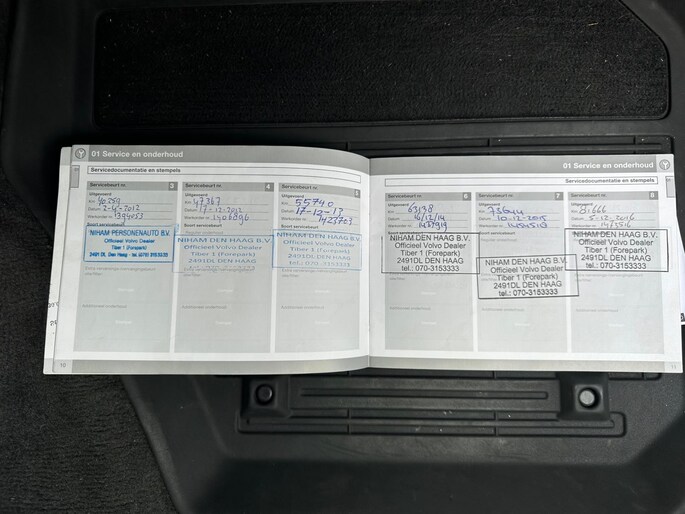 01 Service en onderhoud
Servicedocumentatie en stempels
Servicebeurt nr. 3
Uitgevoerd
Km
Datum 2-4-2012
Werkorder nr. 1394053
Soort servicebeurt
NIHAM PERSONENAUTO B.V.
Officieel Volvo Dealer
Tiber 1 (Forepark)
2491 DL Den Haag - tel. (070) 3153333
Servicebeurt nr. 4
Uitgevoerd
Km 47367
Datum 17-12-2012
Werkorder nr. 1406896
NIHAM DEN HAAG B.V.
Officieel Volvo Dealer
Tiber 1 (Forepark)
2491DL DEN HAAG
tel.: 070-3153333
Servicebeurt nr. 5
Uitgevoerd
Km 55740
Datum 17-12-13
Werkorder nr. 1423703
Soort servicebeurt
NIHAM DEN HAAG B.V.
Officieel Volvo Dealer
Tiber 1 (Forepark)
2491DL DEN HAAG
tel.: 070-3153333
16
01 Service en onderhoud
Servicedocumentatie en stempels
Servicebeurt nr. 6
Uitgevoerd
Km 63138
Datum 16/12/14
Werkorder nr. 1437919
NIHAM DEN HAAG B.V.
Officieel Volvo Dealer
Tiber 1 (Forepark)
2491DL DEN HAAG
tel.: 070-3153333
Servicebeurt nr. 7
Uitgevoerd
Km
Datum 10-12-2015
Werkorder nr.
Soort servicebeurt
NIHAM DEN HAAG B.V.
Officieel Volvo Dealer
Tiber 1 (Forepark)
2491DL DEN HAAG
tel.: 070-3153333
Servicebeurt nr. 8
Uitgevoerd
Km
Datum 5-12-2016
Werkorder nr.
NIHAM DEN HAAG B.V.
Officieel Volvo Dealer
Tiber 1 (Forepark)
2491DL DEN HAAG
tel.: 070-3153333